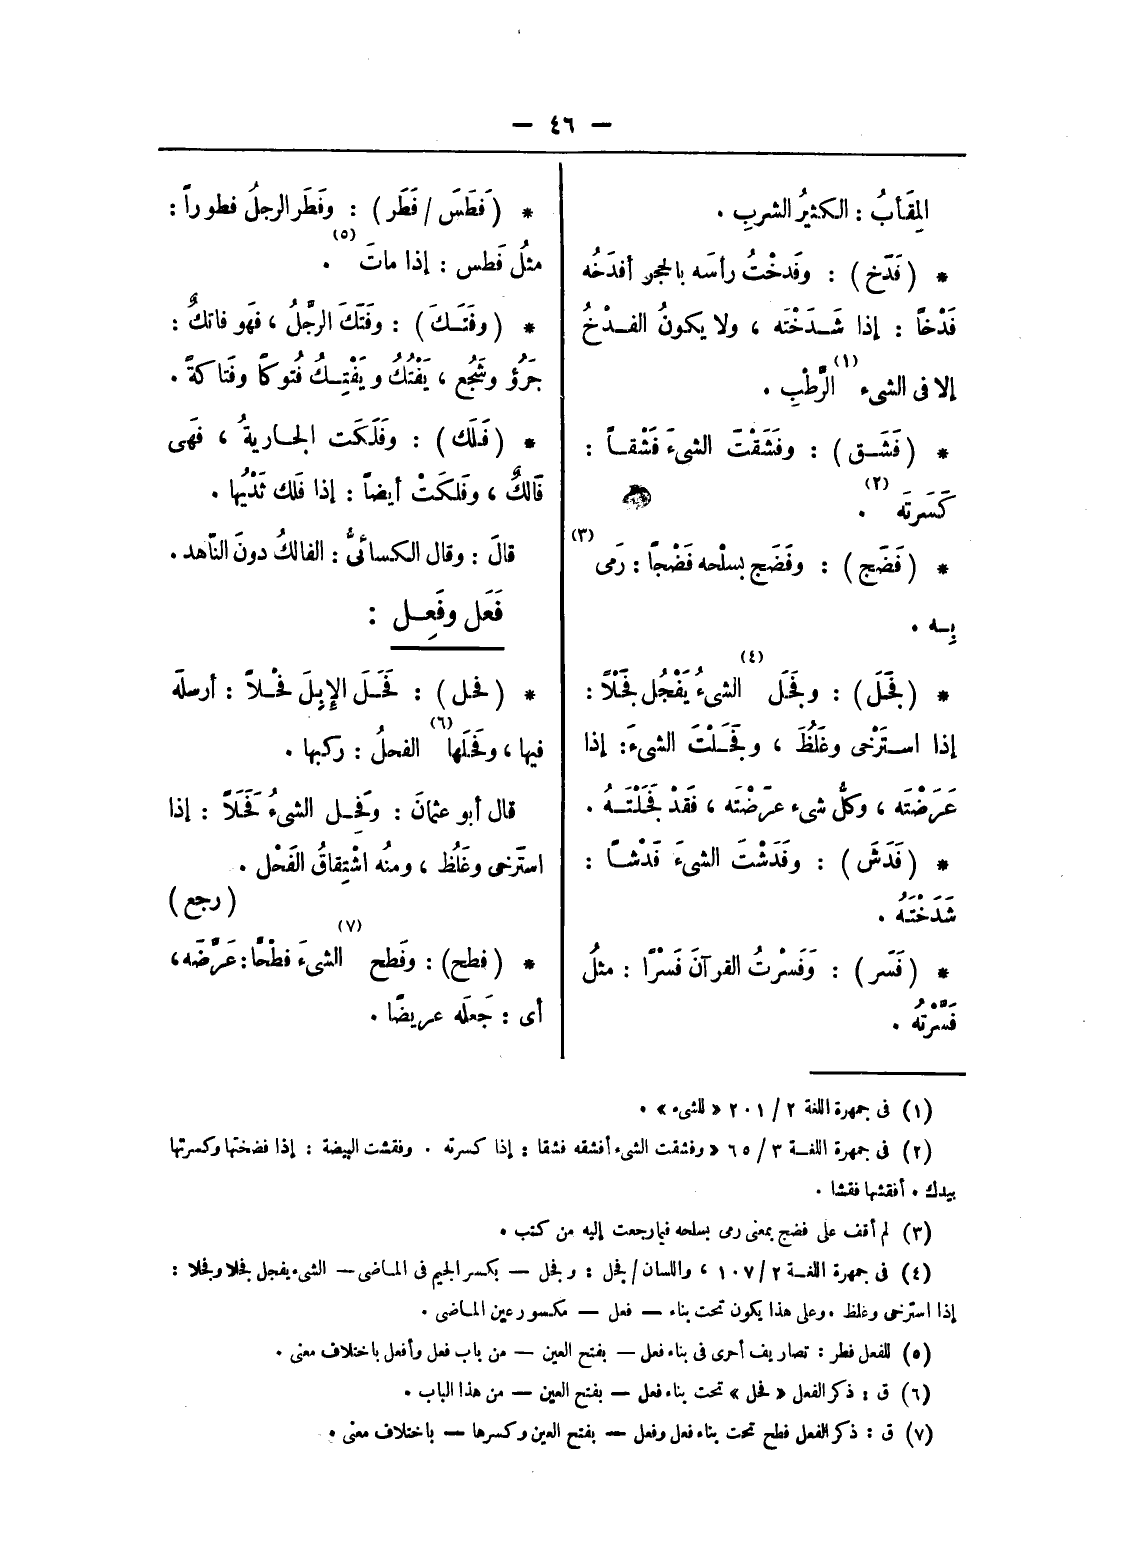 — ٤٦ —
المِقْأبُ : الكثيرُ الشربِ .
* ( فَدَخ ) : وفَدخْتُ رأسَه بالحجرِ أفدَخُه
فَدْخاً : إذا شَـدَخْتَه ، ولا يكونُ الفـدْخُ
إلا فى الشىءِ (١) الرَّطْبِ .
* ( فَشَـق ) : وفَشَقْتَ الشىءَ فَشْقـاً :
كَسَرتَه (٢) .
* ( فَضَج ) : وفَضَج بسلْحه فَضْجاً : رَمى (٣)
بِـه .
* ( فَجَلَ ) : وفجَل (٤) الشىءُ يَفْجُل فَجْلاً :
إذا اسـتَرْخى وغَلُظَ ، وفَجَـلْتَ الشىءَ: إذا
عَرَضْتَه ، وكلُّ شىء عرّضْتَه ، فَقَدْ فَجَلْتَـهُ .
* ( فَدَشَ ) : وفَدَشْتَ الشىءَ فَدْشـاً :
شَدَخْتَـهُ .
* ( فَسَر ) : وَفَسرْتُ القرآنَ فَسْرًا : مثلُ
فَسَّرْتهُ .
* ( فَطَسَ / فَطَر ) : وفَطَر الرجلُ فطوراً :
مثلُ فَطس : إذا ماتَ (٥) .
* ( وفَتَـكَ ) : وفَتَكَ الرَّجُلُ ، فَهو فاتكٌ :
جَرُؤ وشَجُع ، يَفْتُكُ ويَفْتِـكُ فُتوكاً وفَتاكةً .
* ( فَلَك ) : وفَلَكَت الجـاريةُ ، فهَى
فَالكٌ ، وفَلكَتْ أيضاً : إذا فَلك ثَدْيُها .
قالَ : وقال الكسائىُّ : الفالكُ دونَ النّاهد .
فَعَل وفَعِـل :
* ( فحل ) : فَحَـلَ الإِبِلَ فحْـلاً : أرسلَه
فيها ، وفَحَلَها (٦) الفحلُ : ركبها .
قال أبو عثمانَ : وفَحِـل الشىءُ فَحَلاً : إذا
استَرخى وغَلُظ ، ومنُه اشْتِقاقُ الفَحْل .
( رجع )
* ( فطح ) : وفَطح (٧) الشىءَ فطْحًا : عَرَّضَه ،
أى : جَعلَه عريضًا .
(١) فى جمهرة اللغة ٢ / ٢٠١ « للشىء » .
(٢) فى جمهرة اللغـة ٣ / ٦٥ « وفشقت الشىء أفشقه فشقا : إذا كسرته . وفقشت البيضة : إذا فضختها وكسرتها
بيدك . أفقشها فقشا .
(٣) لم أقف على فضج بمعنى رمى بسلحه فيما رجعت إليه من كتب .
(٤) فى جمهرة اللغـة ٢ / ١٠٧ ، واللسان / فجل : وفجل — بكسر الجيم فى الماضى — الشىء يفجل فجلا وفجلا :
إذا استرخى وغلظ . وعلى هذا يكون تحت بناء — فعل — مكسور عين الماضى .
(٥) للفعل فطر : تصاريف أحرى فى بناء فعل — بفتح العين — من باب فعل وأفعل باختلاف معنى .
(٦) ق : ذكر الفعل « فحل » تحت بناء فعل — بفتح العين — من هذا الباب .
(٧) ق : ذكر الفعل فطح تحت بناء فعل وفعل — بفتح العين وكسرها — باختلاف معنى .